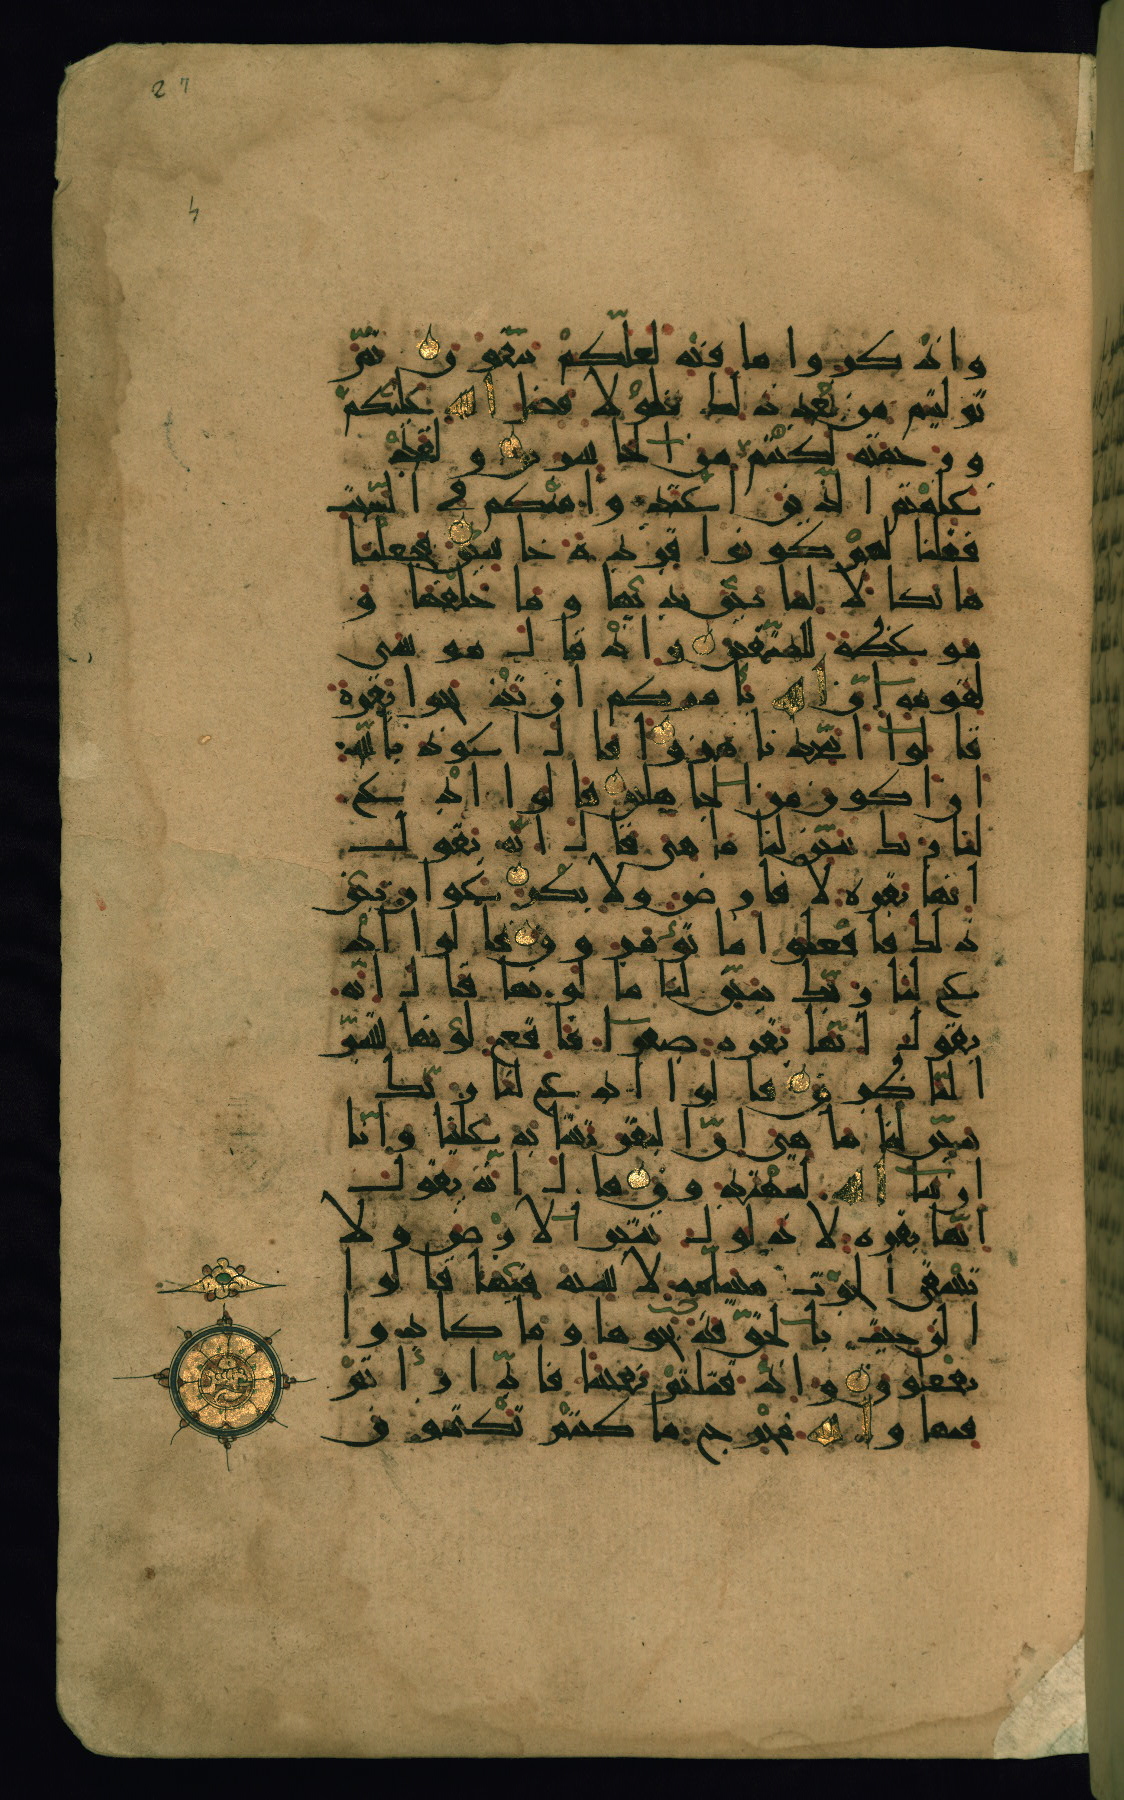 27
واذكروا ما فيه لعلكم تتقون ثم
توليتم من بعد ذلك فلولا فضل الله عليكم
ورحمته لكنتم من الخاسرين ولقد
علمتم الذين اعتدوا منكم في السبت
فقلنا لهم كونوا قردة خاسين فجعلنا
ها نكالا لما بين يديها وما خلفها و
موعظة للمتقين واذ قال موسى
لقومه ان الله يأمركم ان تذبحوا بقرة
قالوا اتتخذنا هزوا قال اعوذ بالله
ان اكون من الجاهلين قالوا اد ع
لنا ربك يبين لنا ما هي قال انه يقول
انها بقره لا فارض ولا بكر عوان بين
ذلك فافعلوا ما تؤمرون قالوا اد
ع لنا ربك يبين لنا ما لونها قال انه
يقول انها بقره صفرا فاقع لونها تسر
الناظرين قالوا ادع لنا ربك
يبين لنا ما هي ان البقر تشابه علينا وانا
ان شا الله لمهتدون قال انه يقول
انها بقره لا ذلول تثير الارض ولا
تسقي الحرث مسلمه لا شيه فيها قالوا
الن جيت بالحق فذبحوها وما كادوا
يفعلون واذ قتلتم نفسا فادارأتم
فيها والله مخرج ما كنتم تكتمون